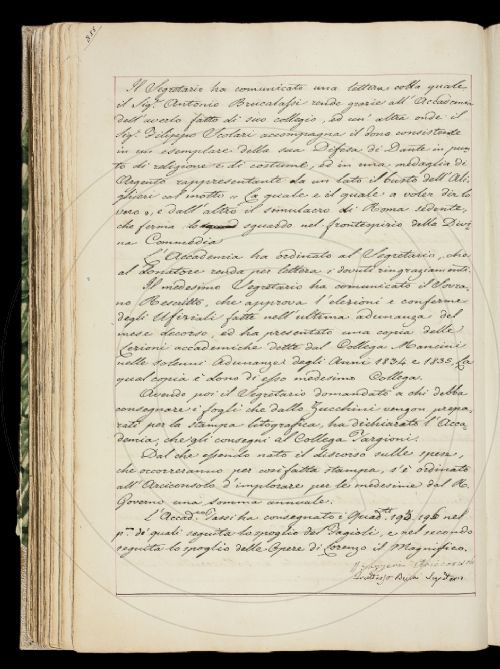 Il Segretario ha comunicato una lettera colla quale
il Sigr. Antonio Brucalassi rende grazie all'Accademia
dell'averlo fatto di suo collegio, ed un'altra onde il
Sigr. Filippo Scolari accompagna il dono consistente
in un esemplare della sua Difesa di Dante in pun
to di religione e di costume, ed in una medaglia di
Argento rappresentante da un lato il busto dell'Ali
ghieri col motto « La quale e il quale a voler dir lo
vero », e dall'altro il simulacro di Roma sedente,
che ferma lo sguardo nel frontespizio della Divi
na Commedia
L'Accademia ha ordinato al Segretario, che
al donatore renda per lettera i dovuti ringraziamenti.
Il medesimo Segretario ha comunicato il Sovra
no Rescritto, che approva l'elezioni e conferme
degli Ufiziali fatte nell'ultima adunanza del
mese decorso, ed ha presentato una copia delle
Lezioni accademiche dette dal Collega Mancini
nelle solenni Adunanze degli Anni 1834 e 1835. La
qual copia è dono di esso medesimo Collega.
Avendo poi il Segretario domandato a chi debba
consegnare i fogli che dallo Zucchini vengon prepa
rati per la stampa litografica, ha dichiarato l'Acca
demia, che gli consegni al Collega Targioni.
Dal che essendo nato il discorso sulle spese,
che occorreranno per così fatta stampa, s'è ordinato
all'Arciconsolo d'implorare per le medesime dal R.
Governo una somma annuale.
L'Accad.co Tassi ha consegnato i Quad.ti 195 196 nel
p.mo di quali seguita lo spoglio del Fagioli, e nel secondo
seguita lo spoglio delle Opere di Lorenzo il Magnifico.